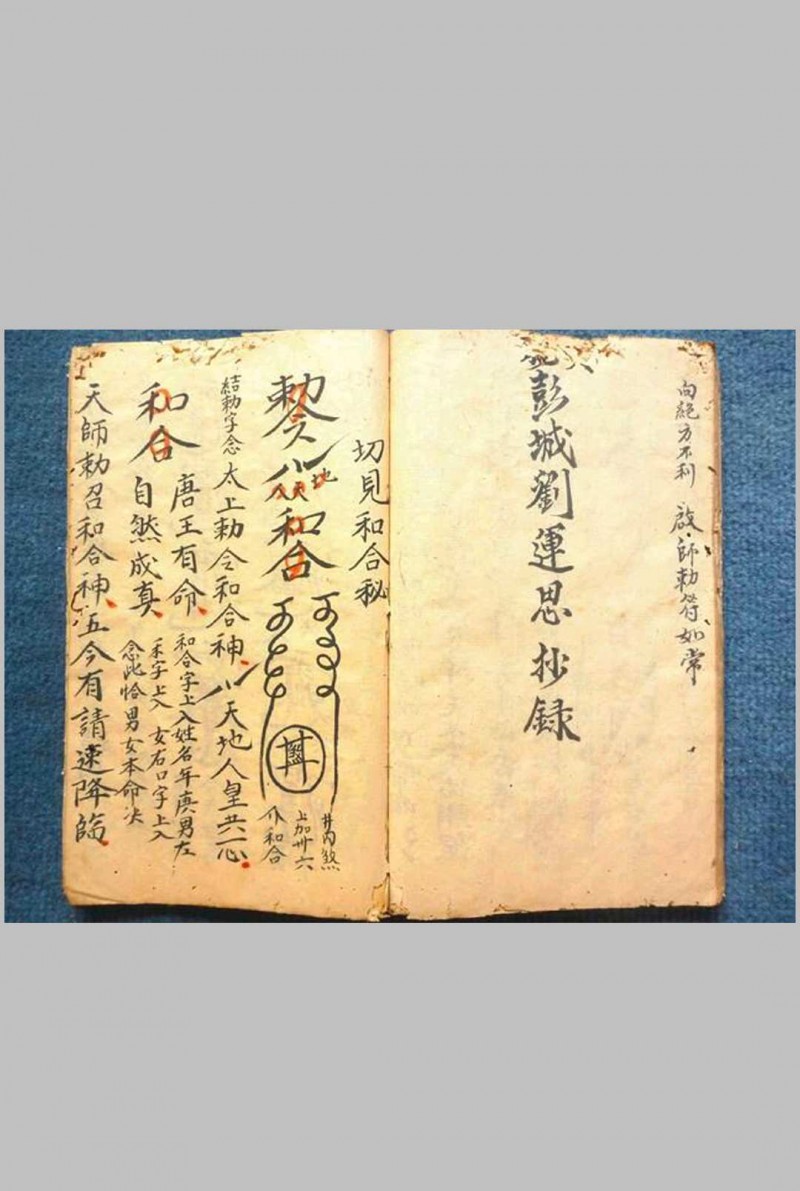 向絕方不利 啟師勅符如常
彭城劉運思抄錄
切見和合秘
勅令八天地和合
井內煞
上加卅六
作和合
結勅字念 太上勅令和合神八天地人皇共一心
和合 唐王有命 和合字上入姓名年庚男左
自然成真 禾字上入 女右口字上入
念此恰男女本命决
天師勅召和合神五今有請速降臨